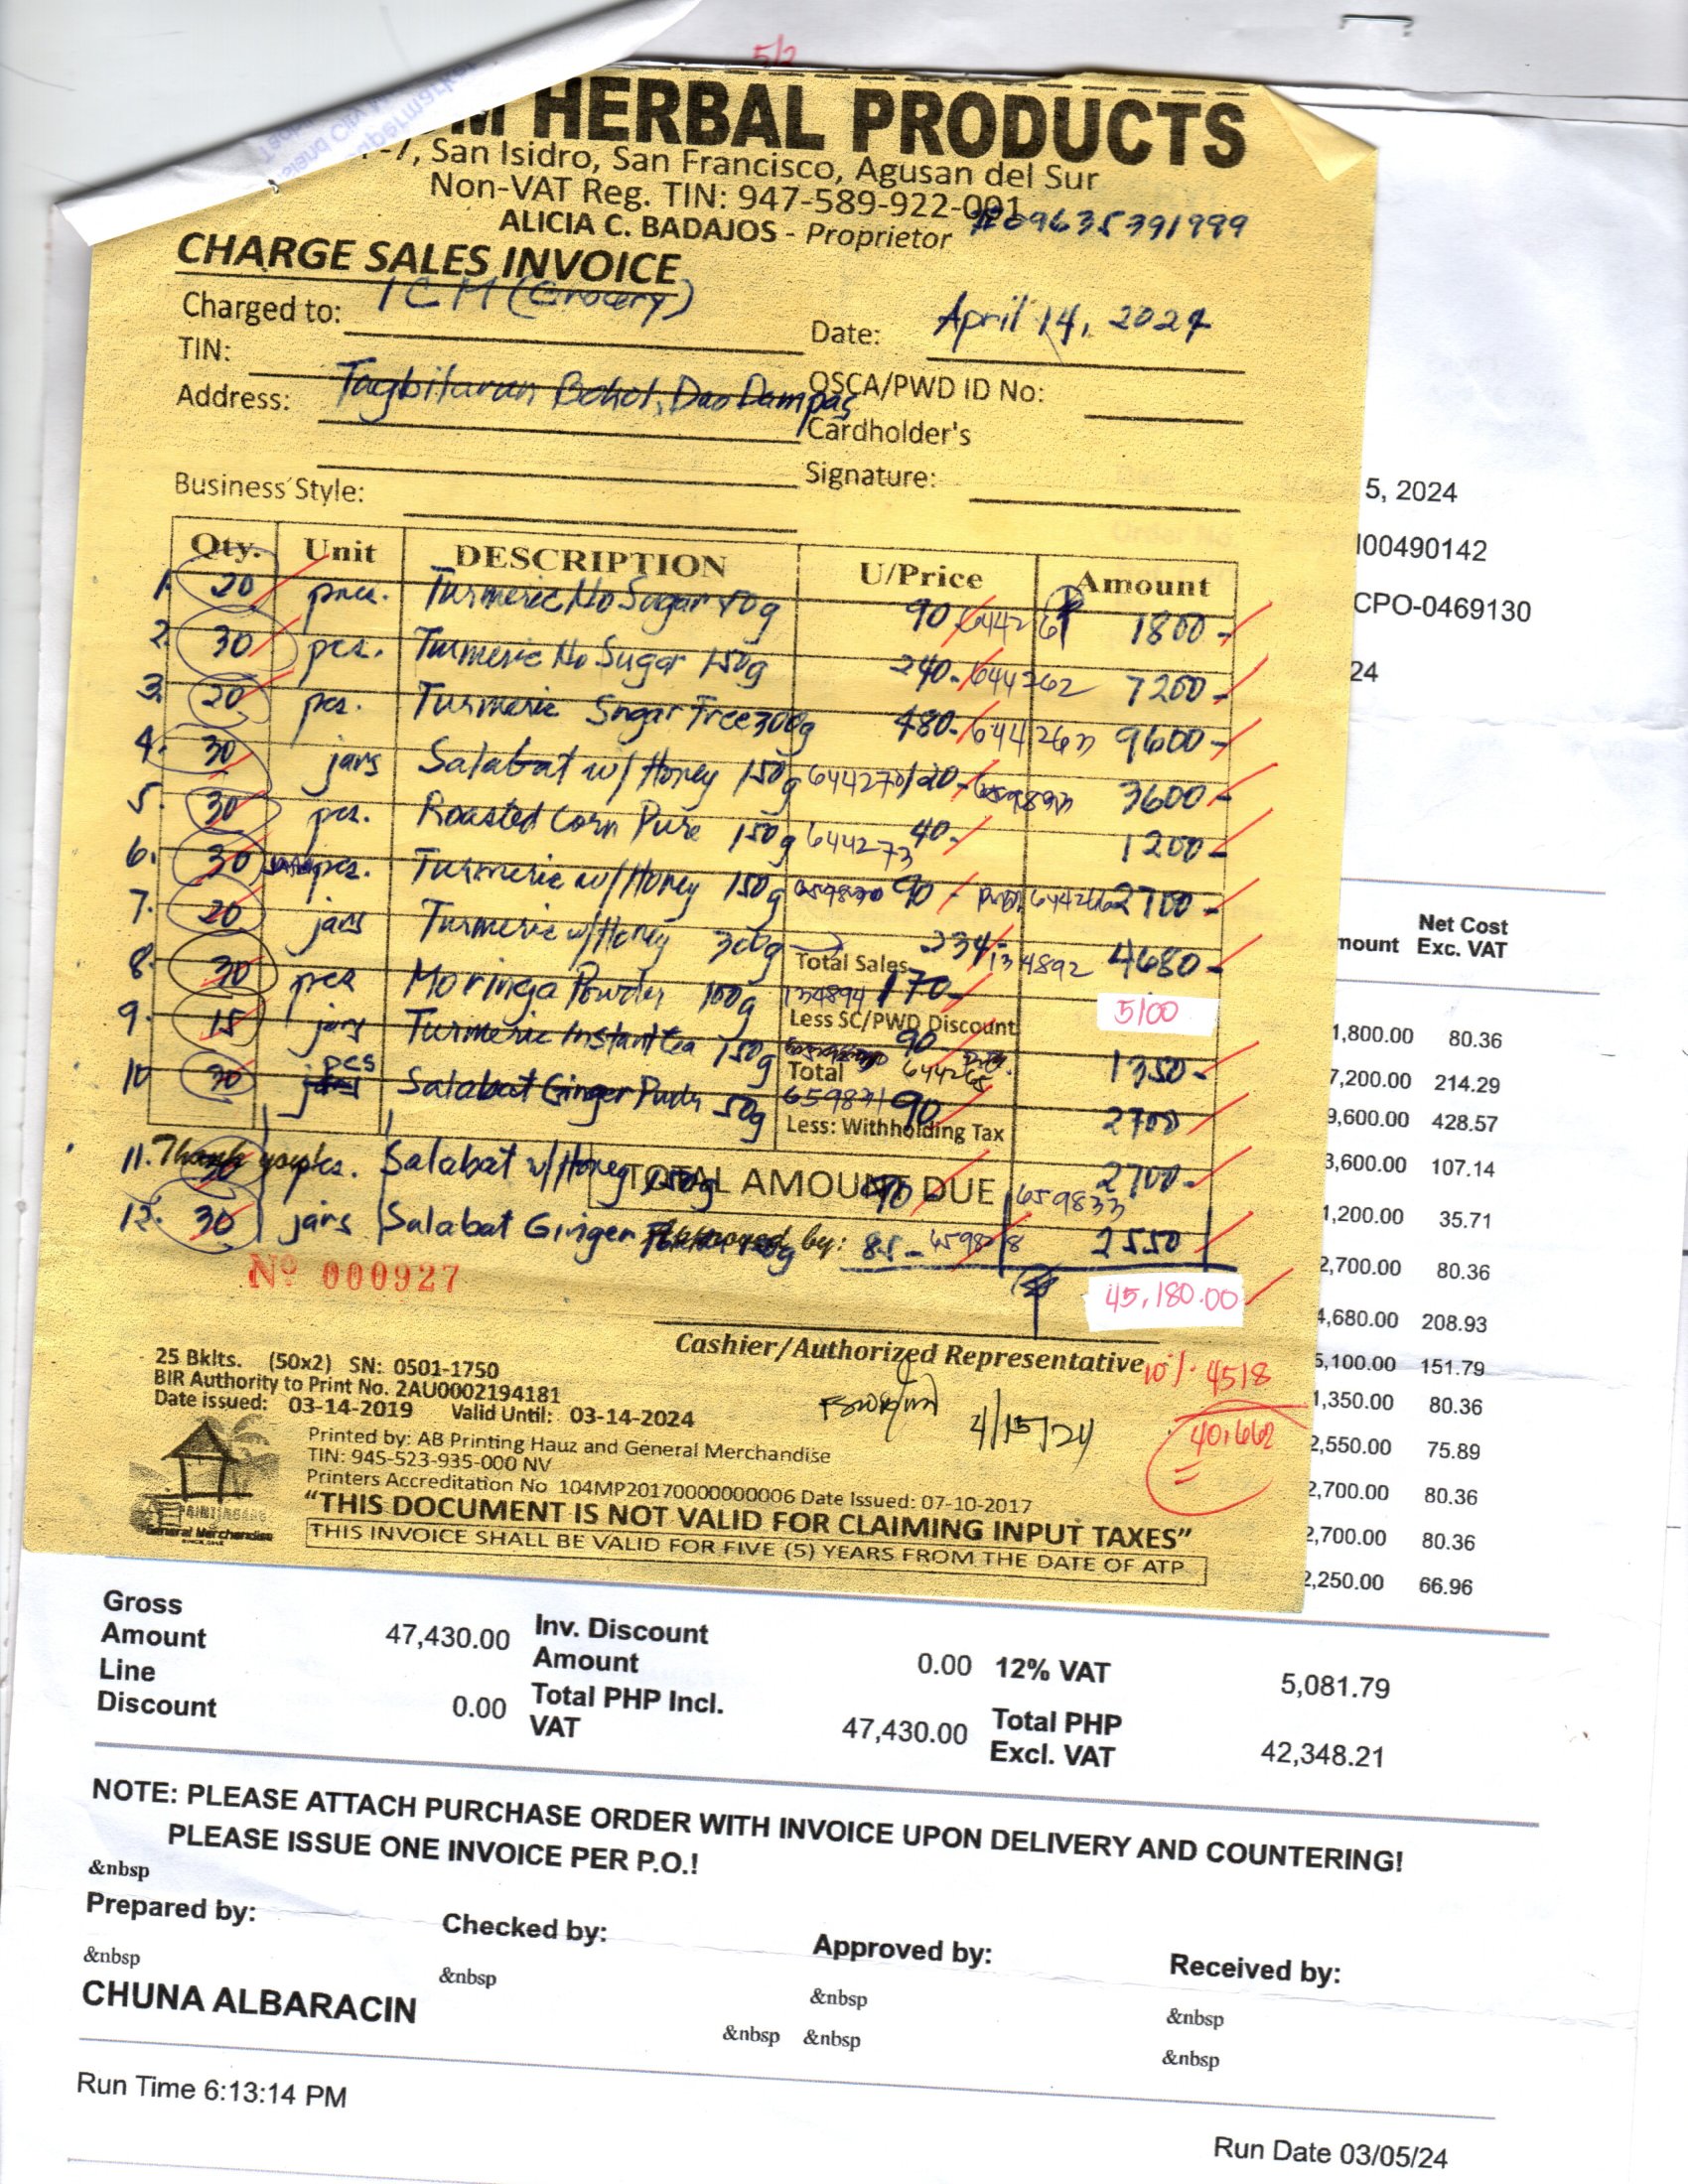 5/2
HERBAL PRODUCTS
-7, San Isidro, San Francisco, Agusan del Sur
Non-VAT Reg. TIN: 947-589-922-001
ALICIA C. BADAJOS - Proprietor #09635391999
CHARGE SALES INVOICE
Charged to: ICM (Grocery)
Date: April 14, 2024
TIN:
OSCA/PWD ID No:
Address: Tagbilaran Bohol, Dao Dampas
Cardholder's
Signature:
Business Style:
Qty. Unit DESCRIPTION U/Price Amount
1. 20 pcs. Turmeric No Sugar 50g 90 644261 1800-
2. 30 pcs. Turmeric No Sugar 150g 240- 644262 7200-
3. 20 pcs. Turmeric Sugar Free 300g 480- 644263 9600-
4. 30 jars Salabat w/ Honey 150g 644270 120- 3600-
5. 30 pcs. Roasted Corn Pure 150g 644273 40- 1200-
6. 30 pcs. Turmeric w/ Honey 150g 90- 2700-
7. 20 jars Turmeric w/ Honey 300g 234- 134892 4680-
Total Sales
8. 30 pcs Moringa Powder 100g 134894 170- 5100
Less SC/PWD Discount
9. 15 jars Turmeric Instant tea 150g 90 644265 1350-
Total
10 30 pcs Salabat Ginger 50g 659831 90 2700
Less: Withholding Tax
11. Thank you pcs. Salabat w/ Honey 90 659833 2700-
TOTAL AMOUNT DUE
12. 30 jars Salabat Ginger by: 85- 2550
Nº 000927
45,180.00
Cashier/Authorized Representative
10% 4518
40,662
=
4/15/24
25 Bklts. (50x2) SN: 0501-1750
BIR Authority to Print No. 2AU0002194181
Date issued: 03-14-2019 Valid Until: 03-14-2024
Printed by: AB Printing Hauz and General Merchandise
TIN: 945-523-935-000 NV
Printers Accreditation No 104MP20170000000006 Date Issued: 07-10-2017
"THIS DOCUMENT IS NOT VALID FOR CLAIMING INPUT TAXES"
THIS INVOICE SHALL BE VALID FOR FIVE (5) YEARS FROM THE DATE OF ATP
General Merchandise
5, 2024
I00490142
CPO-0469130
24
mount Net Cost Exc. VAT
1,800.00 80.36
7,200.00 214.29
9,600.00 428.57
3,600.00 107.14
1,200.00 35.71
2,700.00 80.36
4,680.00 208.93
5,100.00 151.79
1,350.00 80.36
2,550.00 75.89
2,700.00 80.36
2,700.00 80.36
2,250.00 66.96
Gross Amount 47,430.00 Inv. Discount Amount 0.00 12% VAT 5,081.79
Line Discount 0.00 Total PHP Incl. VAT 47,430.00 Total PHP Excl. VAT 42,348.21
NOTE: PLEASE ATTACH PURCHASE ORDER WITH INVOICE UPON DELIVERY AND COUNTERING!
PLEASE ISSUE ONE INVOICE PER P.O.!
&nbsp
Prepared by: Checked by: Approved by: Received by:
&nbsp &nbsp &nbsp &nbsp
CHUNA ALBARACIN
&nbsp &nbsp &nbsp
Run Time 6:13:14 PM
Run Date 03/05/24